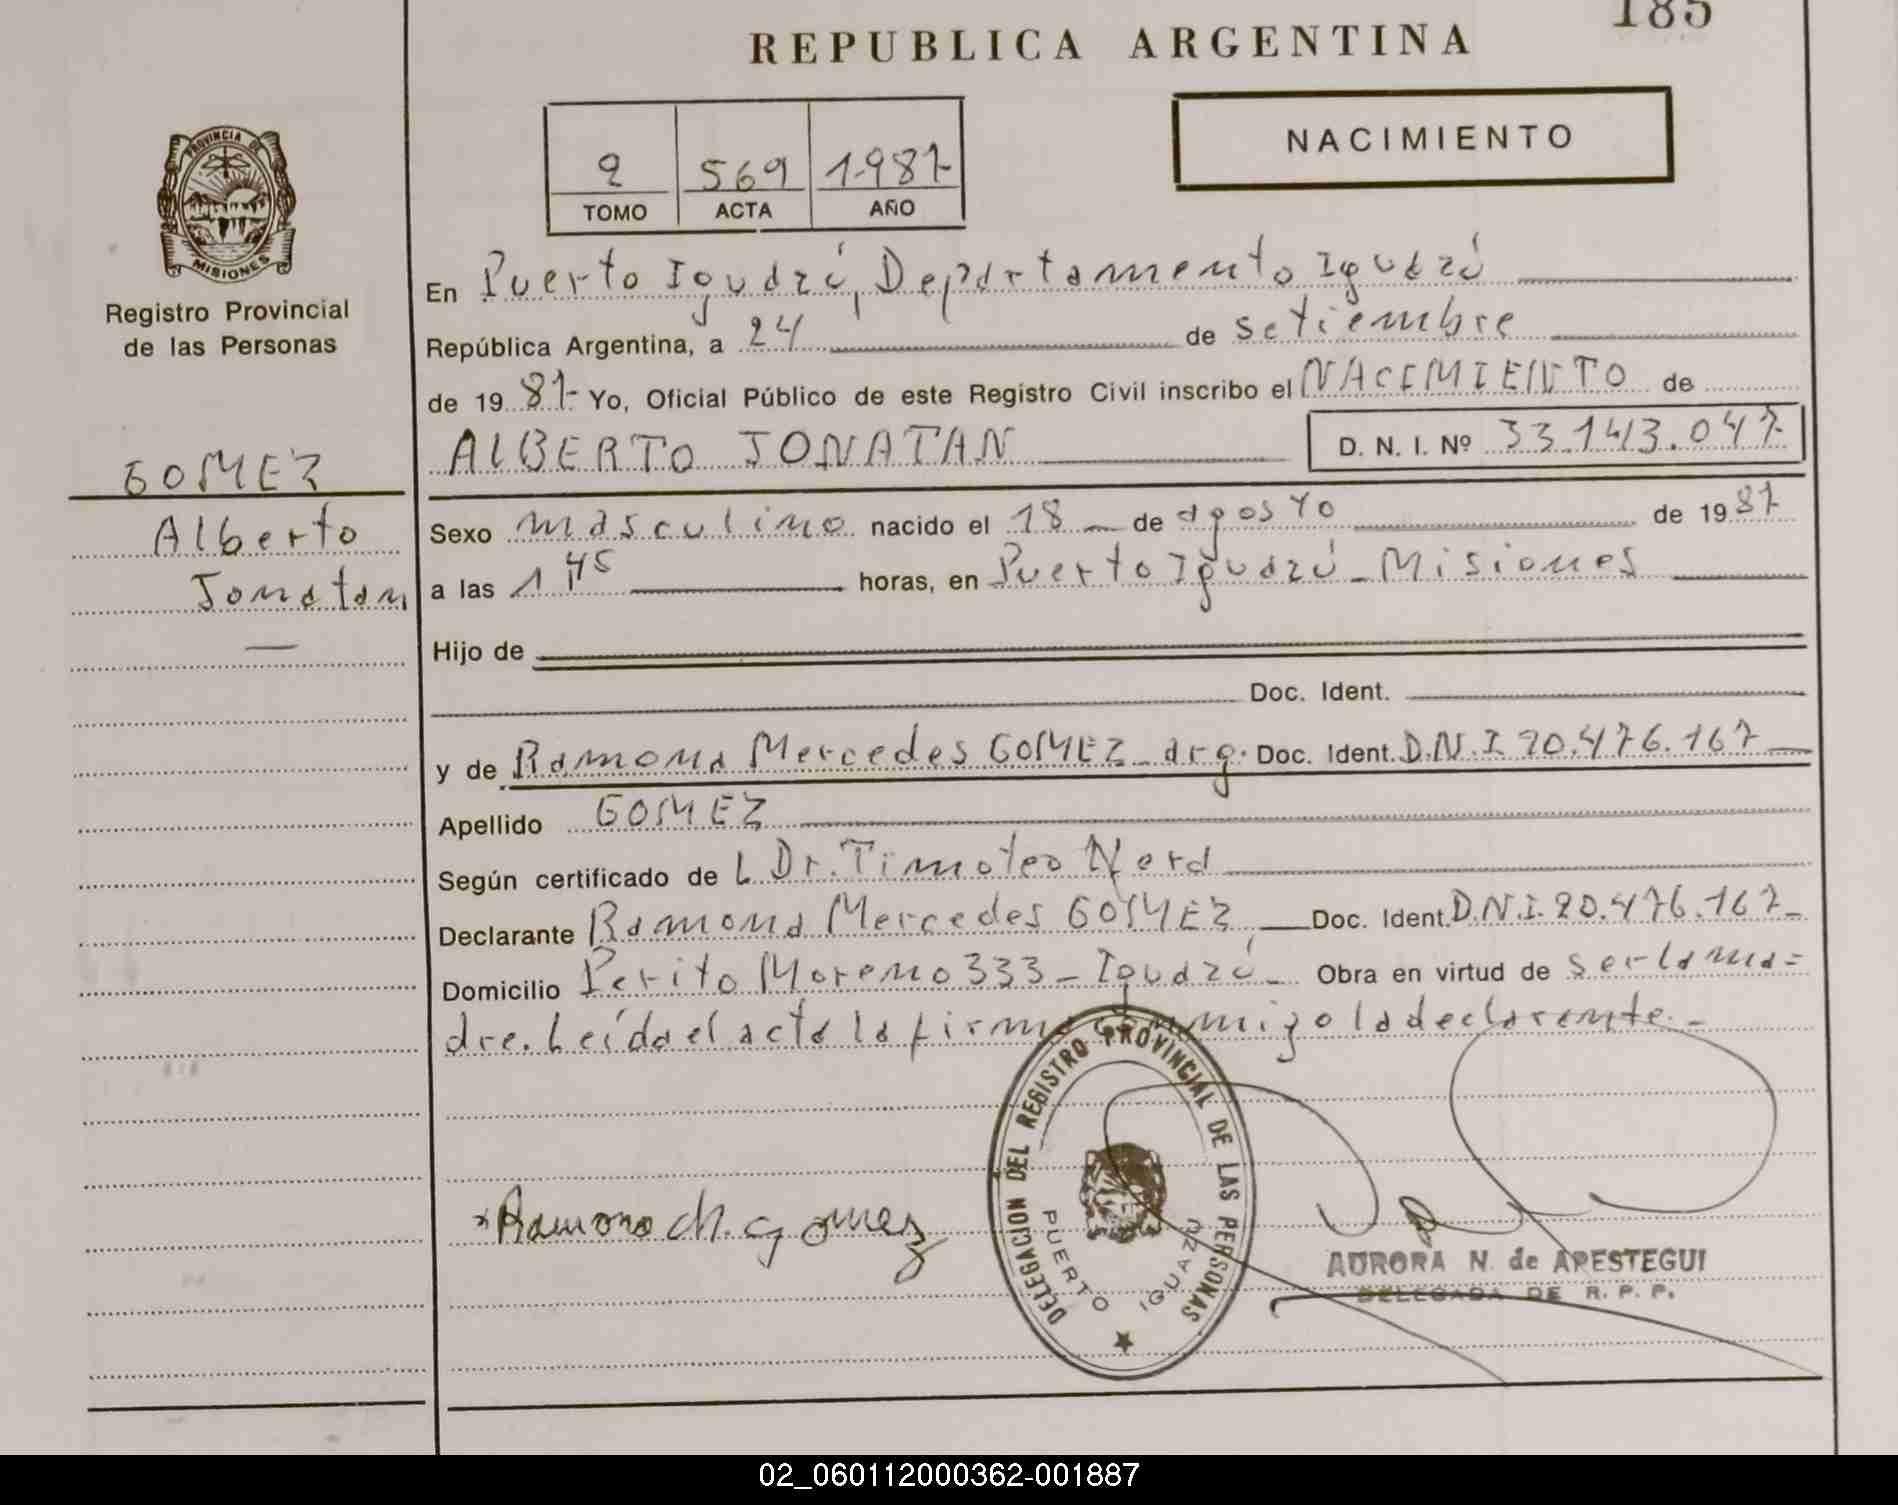 185
REPUBLICA ARGENTINA
PROVINCIA DE
MISIONES
Registro Provincial
de las Personas
2 569 1987
TOMO ACTA AÑO
NACIMIENTO
En Puerto Iguazú, Departamento Iguazú
República Argentina, a 24 de setiembre
de 1987 Yo, Oficial Público de este Registro Civil inscribo el NACIMIENTO de
ALBERTO JONATAN D. N. I. Nº 33.143.047
GOMEZ
Alberto
Jonatan
Sexo masculino nacido el 18 de agosto de 1987
a las 1,45 horas, en Puerto Iguazú - Misiones
Hijo de
Doc. Ident.
y de Ramona Mercedes GOMEZ - arg. Doc. Ident. D.N.I 20.476.167
Apellido GOMEZ
Según certificado de L Dr. Timoteo
Declarante Ramona Mercedes GOMEZ Doc. Ident. D.N.I. 20.476.167-
Domicilio Perito Moreno 333 - Iguazú - Obra en virtud de ser la ma=
dre. Leída el acta la firma conmigo la declarante.-
Ramona M. Gomez
DELEGACION DEL REGISTRO PROVINCIAL DE LAS PERSONAS
PUERTO IGUAZU
AURORA N. de APESTEGUI
DELEGADA DE R. P. P.
02_060112000362-001887